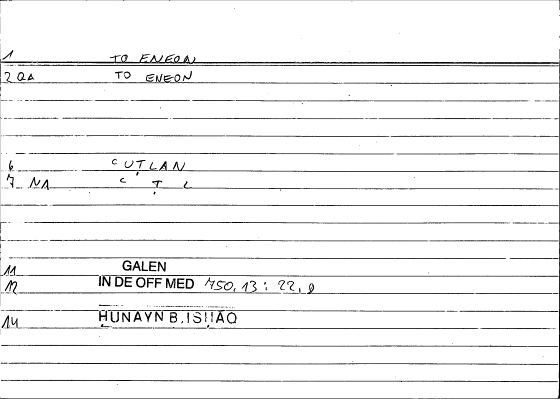 1 TO ENEON
2 QA TO ENEON
6 ʿUṬLAN
7 NA ʿ Ṭ L
11 GALEN
12 IN DE OFF MED 750,13 : 22,9
14 ḤUNAYN B. ISḤĀQ